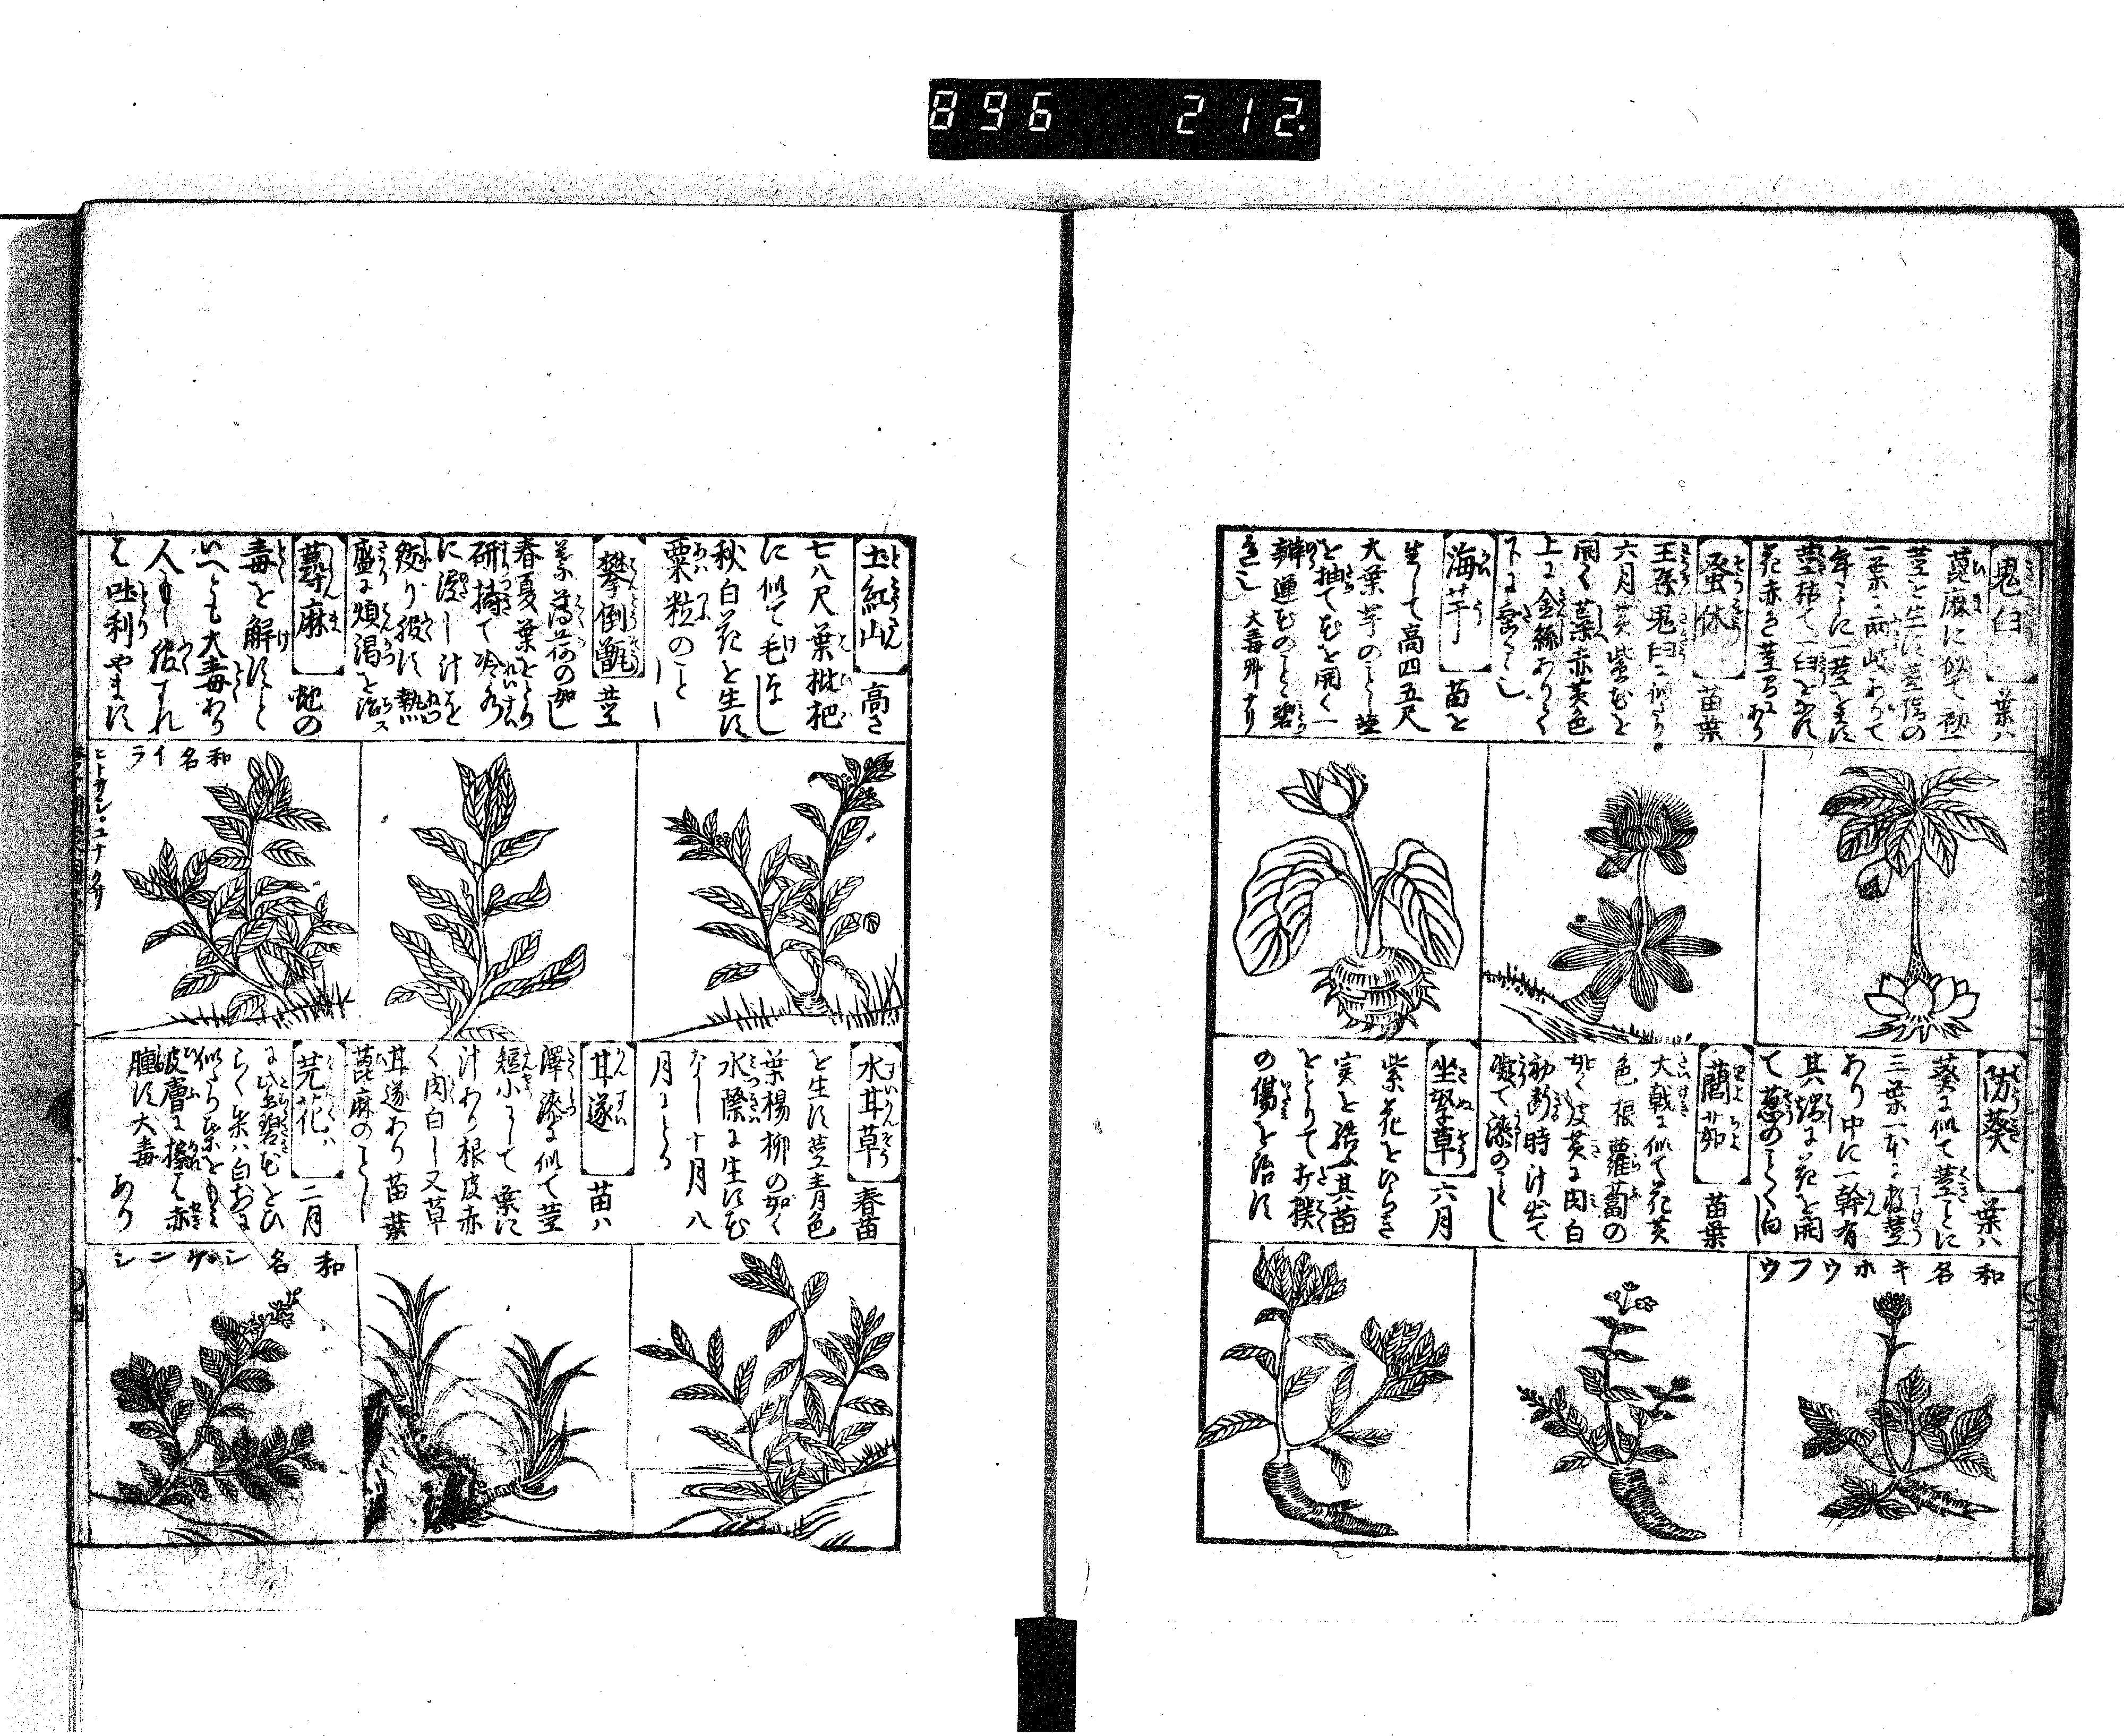 896 212.
鬼臼 葉ハ
蓖麻に似て初一
茎を生ず茎端の
一葉に両岐ありて
年ごとに一茎を生じ
茎枯て一臼を为す
花赤き茎下にあり
蚤休 苗葉
王孫鬼臼に似たり
六月黄紫花を
開く蕊赤黄色
上に金絲ありて
下に垂るゝ
海芋 苗を
生して高四五尺
大葉芋のごとし茎
を抽て花を開く一
瓣蓮花のごとく碧
色なし 大毒アリ
防葵 葉ハ
葵に似て茎ごとに
三葉一本に数茎
あり中に一幹有
其端に花を開
て葱のごとく白
和名 キホウフウ
藺茹 苗葉
大戟に似て花黄
色根蘿蔔の
如く皮黄に肉白
初断時汁出て
凝て漆のごとし
坐拏草 六月
紫花をひらき
実を結ぶ其苗
をとりて打撲
の傷を治す
土紅山 高さ
七八尺葉枇杷
に似て毛なし
秋白花を生ず
粟粒のごとし
攀倒甑 茎
葉薄荷の如し
春夏葉をとり
研擣て冷水
に浸し汁を
絞り服す熱
盛に煩渇を治ス
蕁麻 蛇の
毒を解すと
いへとも大毒あり
人もし服すれ
ば吐利やまず
和名 イラ
水耳草 春苗
を生ず茎青色
葉楊柳の如く
水際に生ず花
なし十月八
月にとる
甘遂 苗ハ
澤漆に似て茎
短小にして葉に
汁あり根皮赤
く肉白し又草
甘遂あり苗葉
蓖麻のごとし
芫花ハ 二月
に紫碧花をひ
らく葉ハ白前に
似たり葉をもみ
皮膚に擦ば赤
腫ず大毒あり
和名 シゲンジ